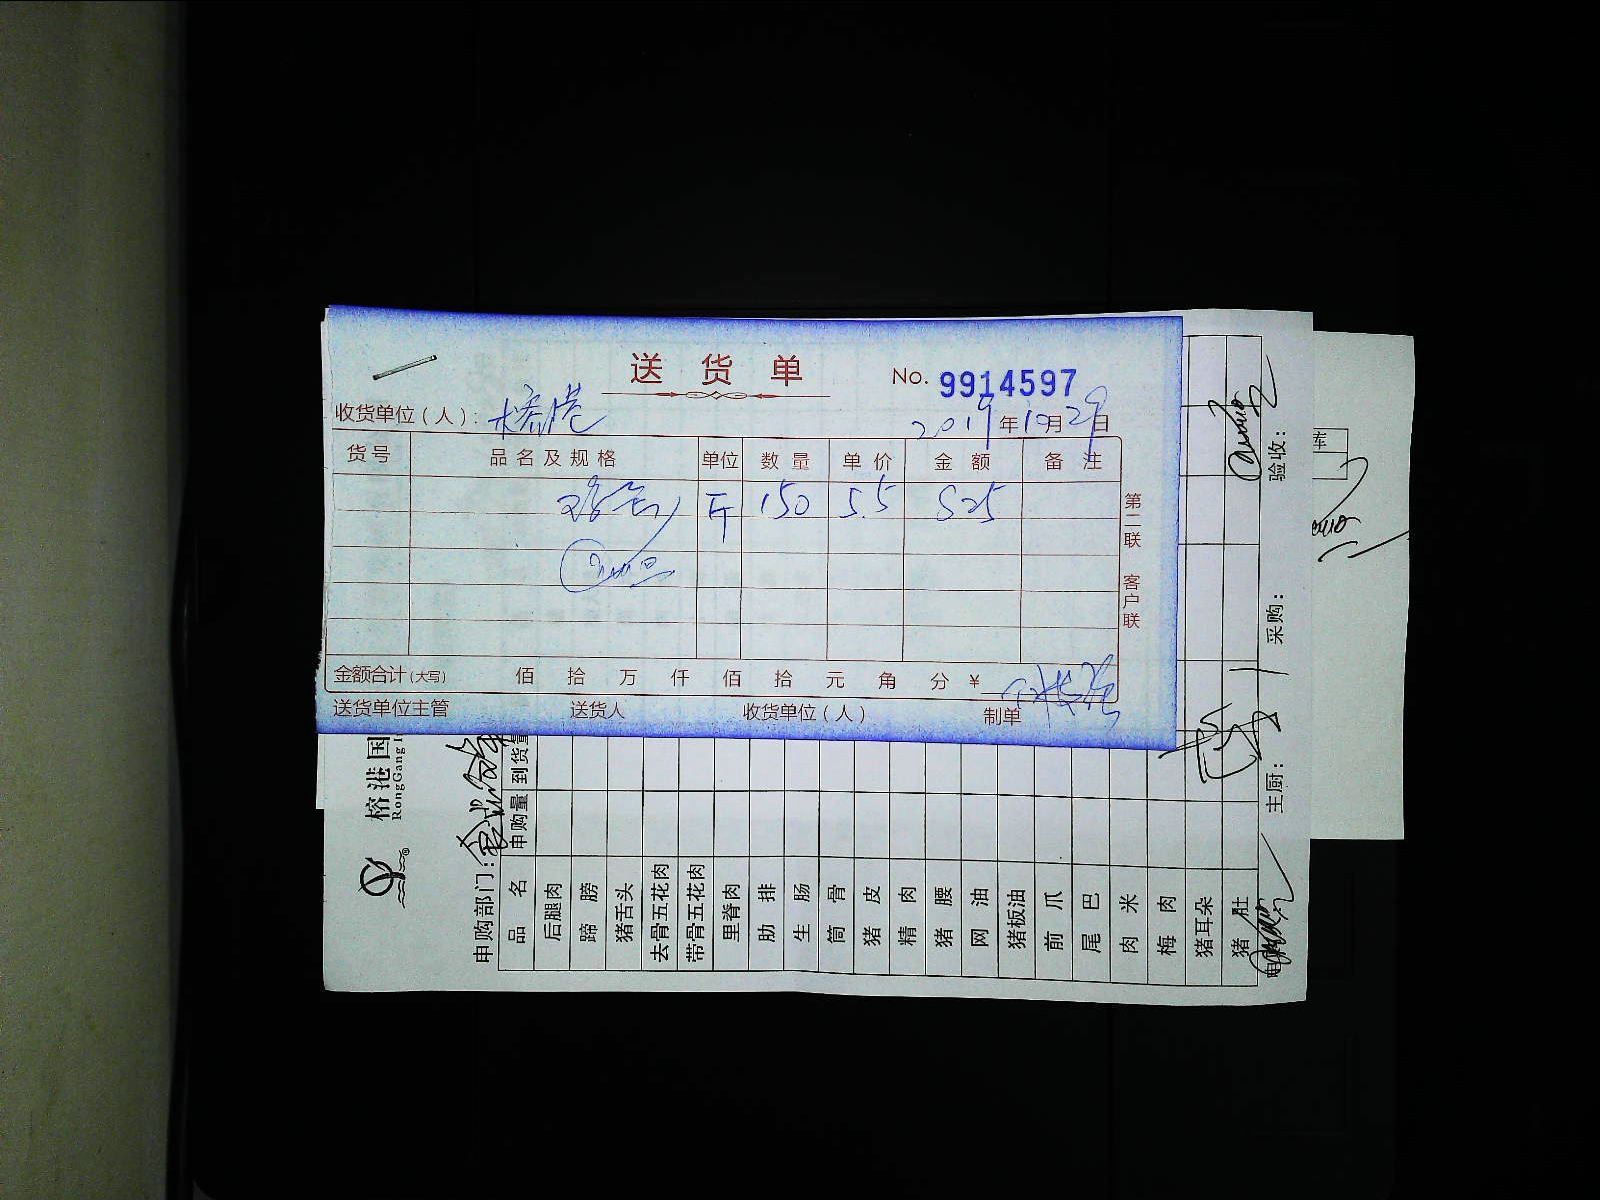 送货单
No. 9914597
收货单位(人): 榕港
2019年10月29日
货号 品名及规格 单位 数量 单价 金额 备注
斤 150 5.5 825
第二联 客户联
金额合计(大写) 佰 拾 万 仟 佰 拾 元 角 分 ¥
送货单位主管 送货人 收货单位(人) 制单
榕港国
RongGang I
申购部门:
品名 申购量 到货量
后腿肉
蹄膀
猪舌头
去骨五花肉
带骨五花肉
里脊肉
肋排
生肠
筒骨
猪皮
精肉
猪腰
网油
猪板油
前爪
尾巴
肉米
梅肉
猪耳朵
猪肚
主厨: 采购: 验收:
库